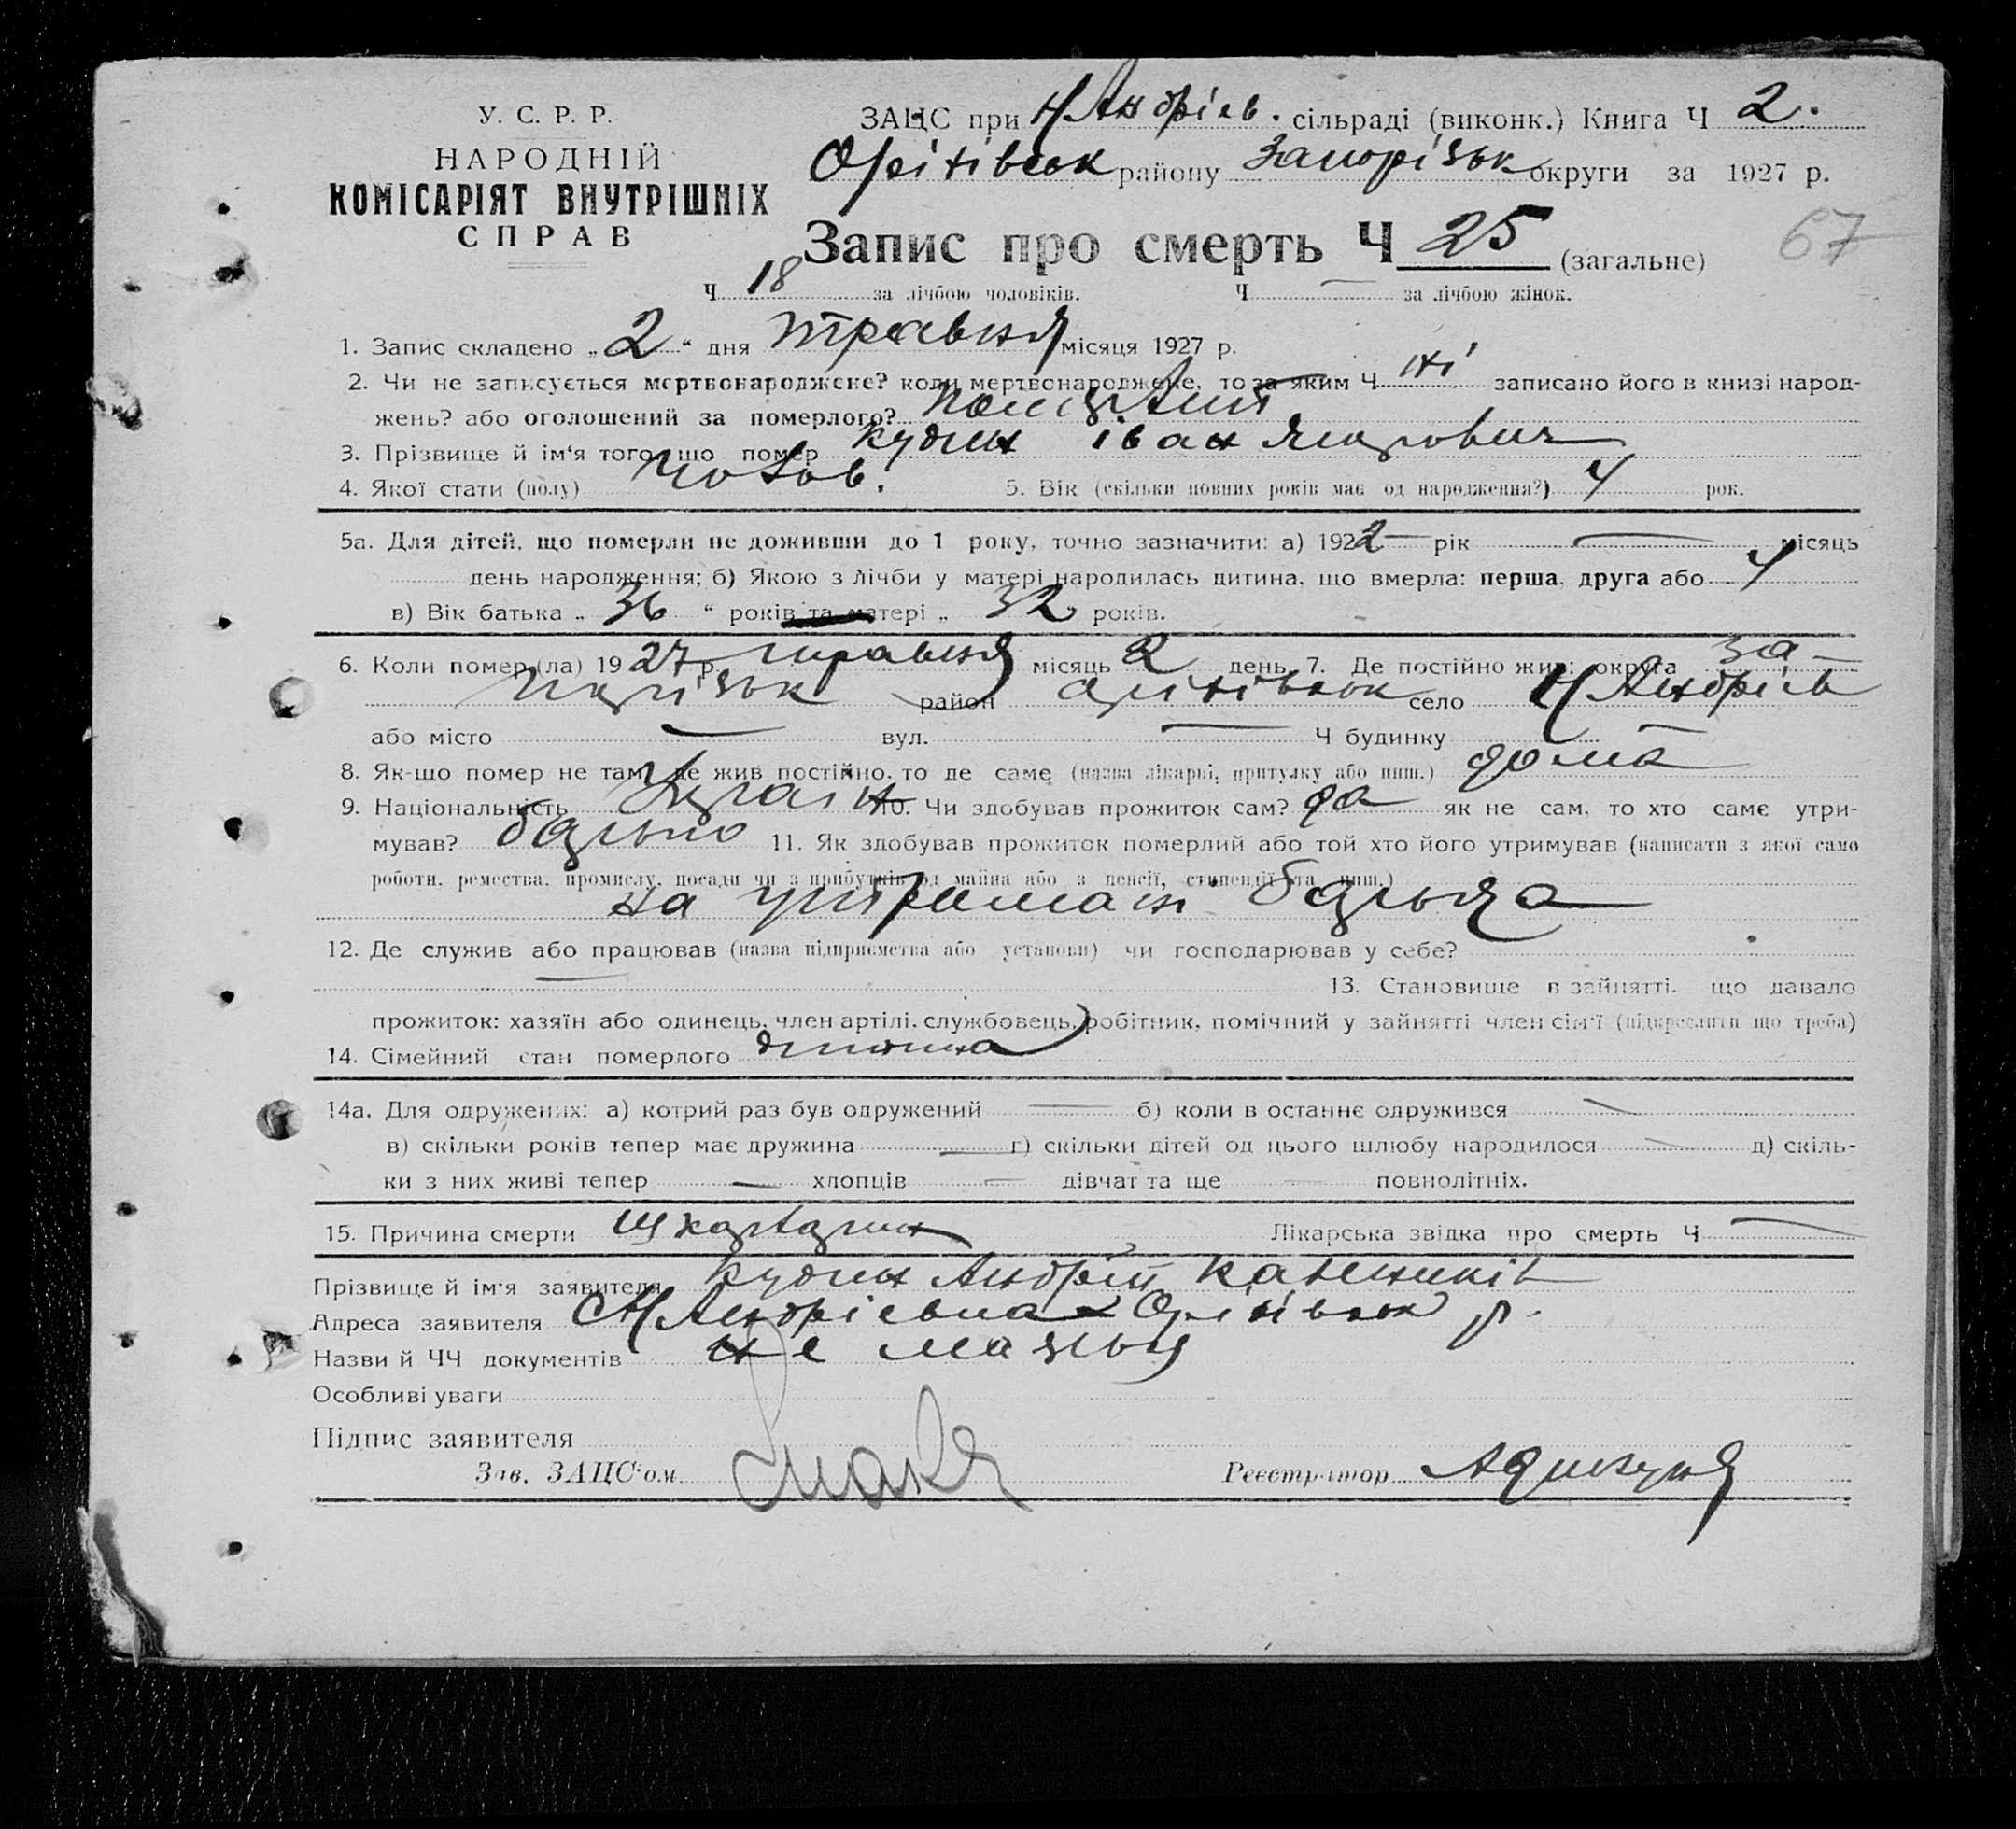 У. С. Р. Р.
НАРОДНІЙ
КОМІСАРІЯТ ВНУТРІШНІХ
СПРАВ
ЗАЦС при Н Андрієв. сільраді (виконк.) Книга Ч 2.
Оріхівськ району Запорізьк округи за 1927 р.
Запис про смерть Ч 25 (загальне)
67
Ч 18 за лічбою чоловіків. Ч — за лічбою жінок.
1. Запис складено „2“ дня травня місяця 1927 р.
2. Чи не записується мертвонароджене? коли мертвонароджене, то за яким Ч ні записано його в книзі народ-
жень? або оголошений за померлого?
3. Прізвище й ім'я того, що помер Кудин Іван
4. Якої стати (полу) чолов. 5. Вік (скільки повних років має од народження?) 4 рок.
5а. Для дітей, що померли не доживши до 1 року, точно зазначити: а) 1922 рік — місяць
день народження; б) Якою з лічби у матері народилась дитина, що вмерла: перша, друга або 4
в) Вік батька „ 36 “ років та матері „ 32 років.
6. Коли помер (ла) 1927 р. травня місяць 2 день 7. Де постійно жив: округа За-
порізьк район Оріхівськ село Н Андрієв
або місто — вул. — Ч будинку —
8. Як-що помер не там, де жив постійно, то де саме (назва лікарні, притулку або инш.) дома
9. Національність Україн 10. Чи здобував прожиток сам? як не сам, то хто саме утри-
мував? батько 11. Як здобував прожиток померлий або той хто його утримував (написати з якої само
роботи, ремества, промислу, посади чи з прибутків од майна або з пенсії, стипендії та инш.)
на утриман батька
12. Де служив або працював (назва підприємства або установи) чи господарював у себе?
— 13. Становище в зайнятті, що давало
прожиток: хазяїн або одинець, член артілі, службовець, робітник, помічний у зайнятті член сім'ї (підкреслити що треба)
14. Сімейний стан померлого дитина
14а. Для одружених: а) котрий раз був одружений — б) коли в останнє одружився —
в) скільки років тепер має дружина — г) скільки дітей од цього шлюбу народилося — д) скіль-
ки з них живі тепер — хлопців — дівчат та ще — повнолітніх.
15. Причина смерти Шкарлатин Лікарська звідка про смерть Ч —
Прізвище й ім'я заявителя Кудин Андрій
Адреса заявителя с Н Андрієвка Оріхівськ р.
Назви й ЧЧ документів не має
Особливі уваги
Підпис заявителя
Зав. ЗАЦС'ом Реєстратор